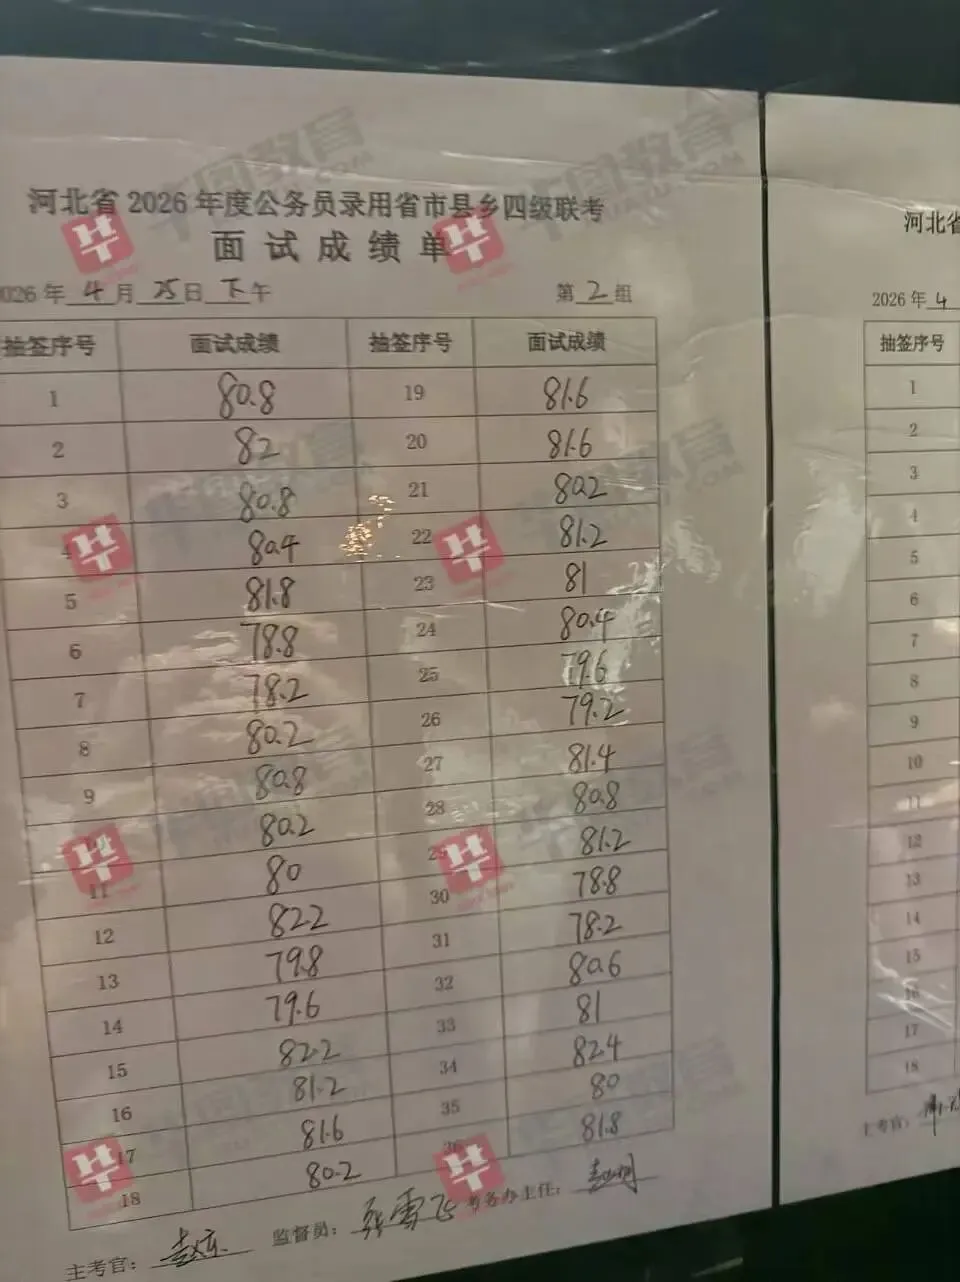 河北省2026年度公务员录用省市县乡四级联考
面试成绩单
026年4月25日下午 第2组
抽签序号 面试成绩 抽签序号 面试成绩
1 80.8 19 81.6
2 82 20 81.6
3 80.8 21 80.2
4 80.4 22 81.2
5 81.8 23 81
6 78.8 24 80.4
7 78.2 25 79.6
8 80.2 26 79.2
9 80.8 27 81.4
10 80.2 28 80.8
11 80 29 81.2
12 82.2 30 78.8
13 79.8 31 78.2
14 79.6 32 80.6
15 82.2 33 81
16 81.2 34 82.4
17 81.6 35 80
18 80.2 36 81.8
主考官: 监督员: 张雪飞 考务办主任:
河北省
2026年4
抽签序号
1
2
3
4
5
6
7
8
9
10
11
12
13
14
15
16
17
18
主考官:
华图教育